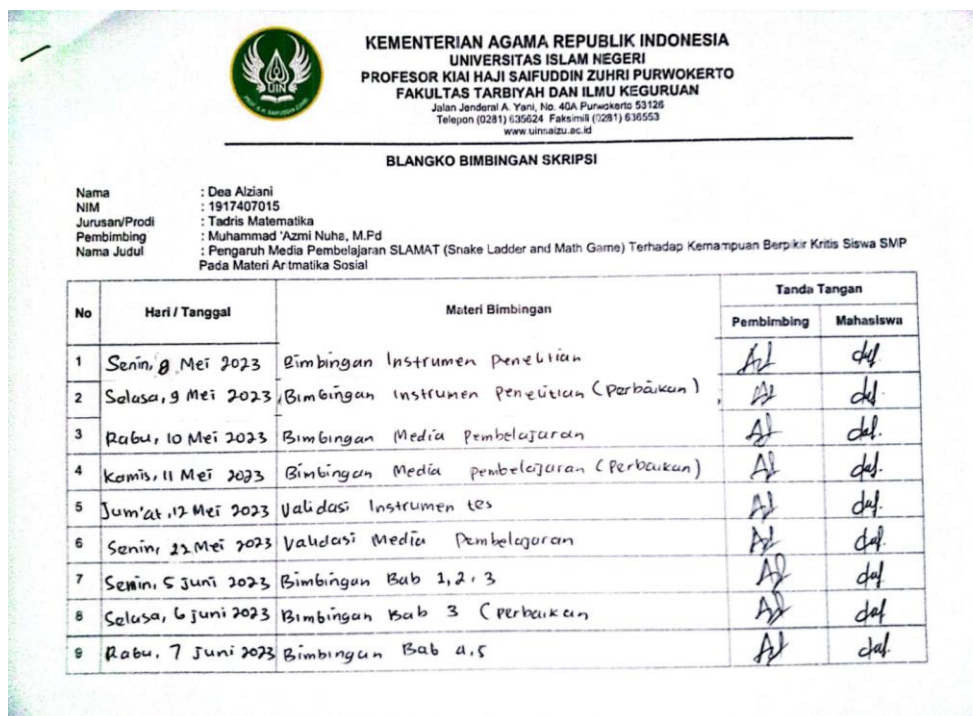 KEMENTERIAN AGAMA REPUBLIK INDONESIA
UNIVERSITAS ISLAM NEGERI
PROFESOR KIAI HAJI SAIFUDDIN ZUHRI PURWOKERTO
FAKULTAS TARBIYAH DAN ILMU KEGURUAN
Jalan Jenderal A. Yani, No. 40A Purwokerto 53126
Telepon (0281) 635624 Faksimili (0281) 636553
www.uinsaizu.ac.id
UIN
BLANGKO BIMBINGAN SKRIPSI
Nama : Dea Alziani
NIM : 1917407015
Jurusan/Prodi : Tadris Matematika
Pembimbing : Muhammad 'Azmi Nuha, M.Pd
Nama Judul : Pengaruh Media Pembelajaran SLAMAT (Snake Ladder and Math Game) Terhadap Kemampuan Berpikir Kritis Siswa SMP
Pada Materi Aritmatika Sosial
No Hari / Tanggal Materi Bimbingan Tanda Tangan
Pembimbing Mahasiswa
1 Senin, 8 Mei 2023 Bimbingan Instrumen Penelitian
2 Selasa, 9 Mei 2023 Bimbingan Instrumen Penelitian (Perbaikan)
3 Rabu, 10 Mei 2023 Bimbingan Media Pembelajaran
4 Kamis, 11 Mei 2023 Bimbingan Media Pembelajaran (Perbaikan)
5 Jum'at, 12 Mei 2023 Validasi Instrumen tes
6 Senin, 22 Mei 2023 Validasi Media Pembelajaran
7 Senin, 5 Juni 2023 Bimbingan Bab 1, 2, 3
8 Selasa, 6 Juni 2023 Bimbingan Bab 3 (Perbaikan
9 Rabu, 7 Juni 2023 Bimbingan Bab 4, 5